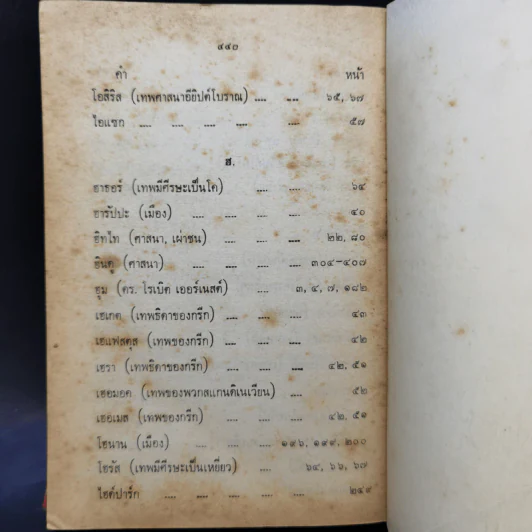 ๔๔๐
คำ หน้า
โอสิริส (เทพศาสนาอียิปต์โบราณ) .... .... ๖๕, ๖๗
ไอแซก .... .... .... .... .... ๕๗
ฮ.
ฮาธอร์ (เทพมีศีรษะเป็นโค) .... .... ๖๔
ฮารัปปะ (เมือง) .... .... .... .... ๔๐
ฮิทไท (ศาสนา, เผ่าชน) .... .... .... ๒๒, ๘๐
ฮินดู (ศาสนา) .... .... .... .... ๓๐๔-๔๐๗
ฮูม (ดร. โรเบิต เออร์เนสต์) .... ๓, ๔, ๗, ๑๘๒
เฮเกต (เทพธิดาของกรีก) .... .... .... ๔๓
เฮแฟสตุส (เทพของกรีก) .... .... .... ๔๒
เฮรา (เทพธิดาของกรีก) .... .... .... ๔๒, ๕๑
เฮอมอด (เทพของพวกสแกนดิเนเวียน) .... ๕๒
เฮอเมส (เทพของกรีก) .... .... .... ๔๒, ๕๑
โฮนาน (เมือง) .... .... .... ๑๙๖, ๑๙๙, ๒๐๐
โฮรัส (เทพมีศีรษะเป็นเหยี่ยว) .... ๖๔, ๖๖, ๖๗
ไฮด์ปาร์ก .... .... .... .... .... ๒๔๙